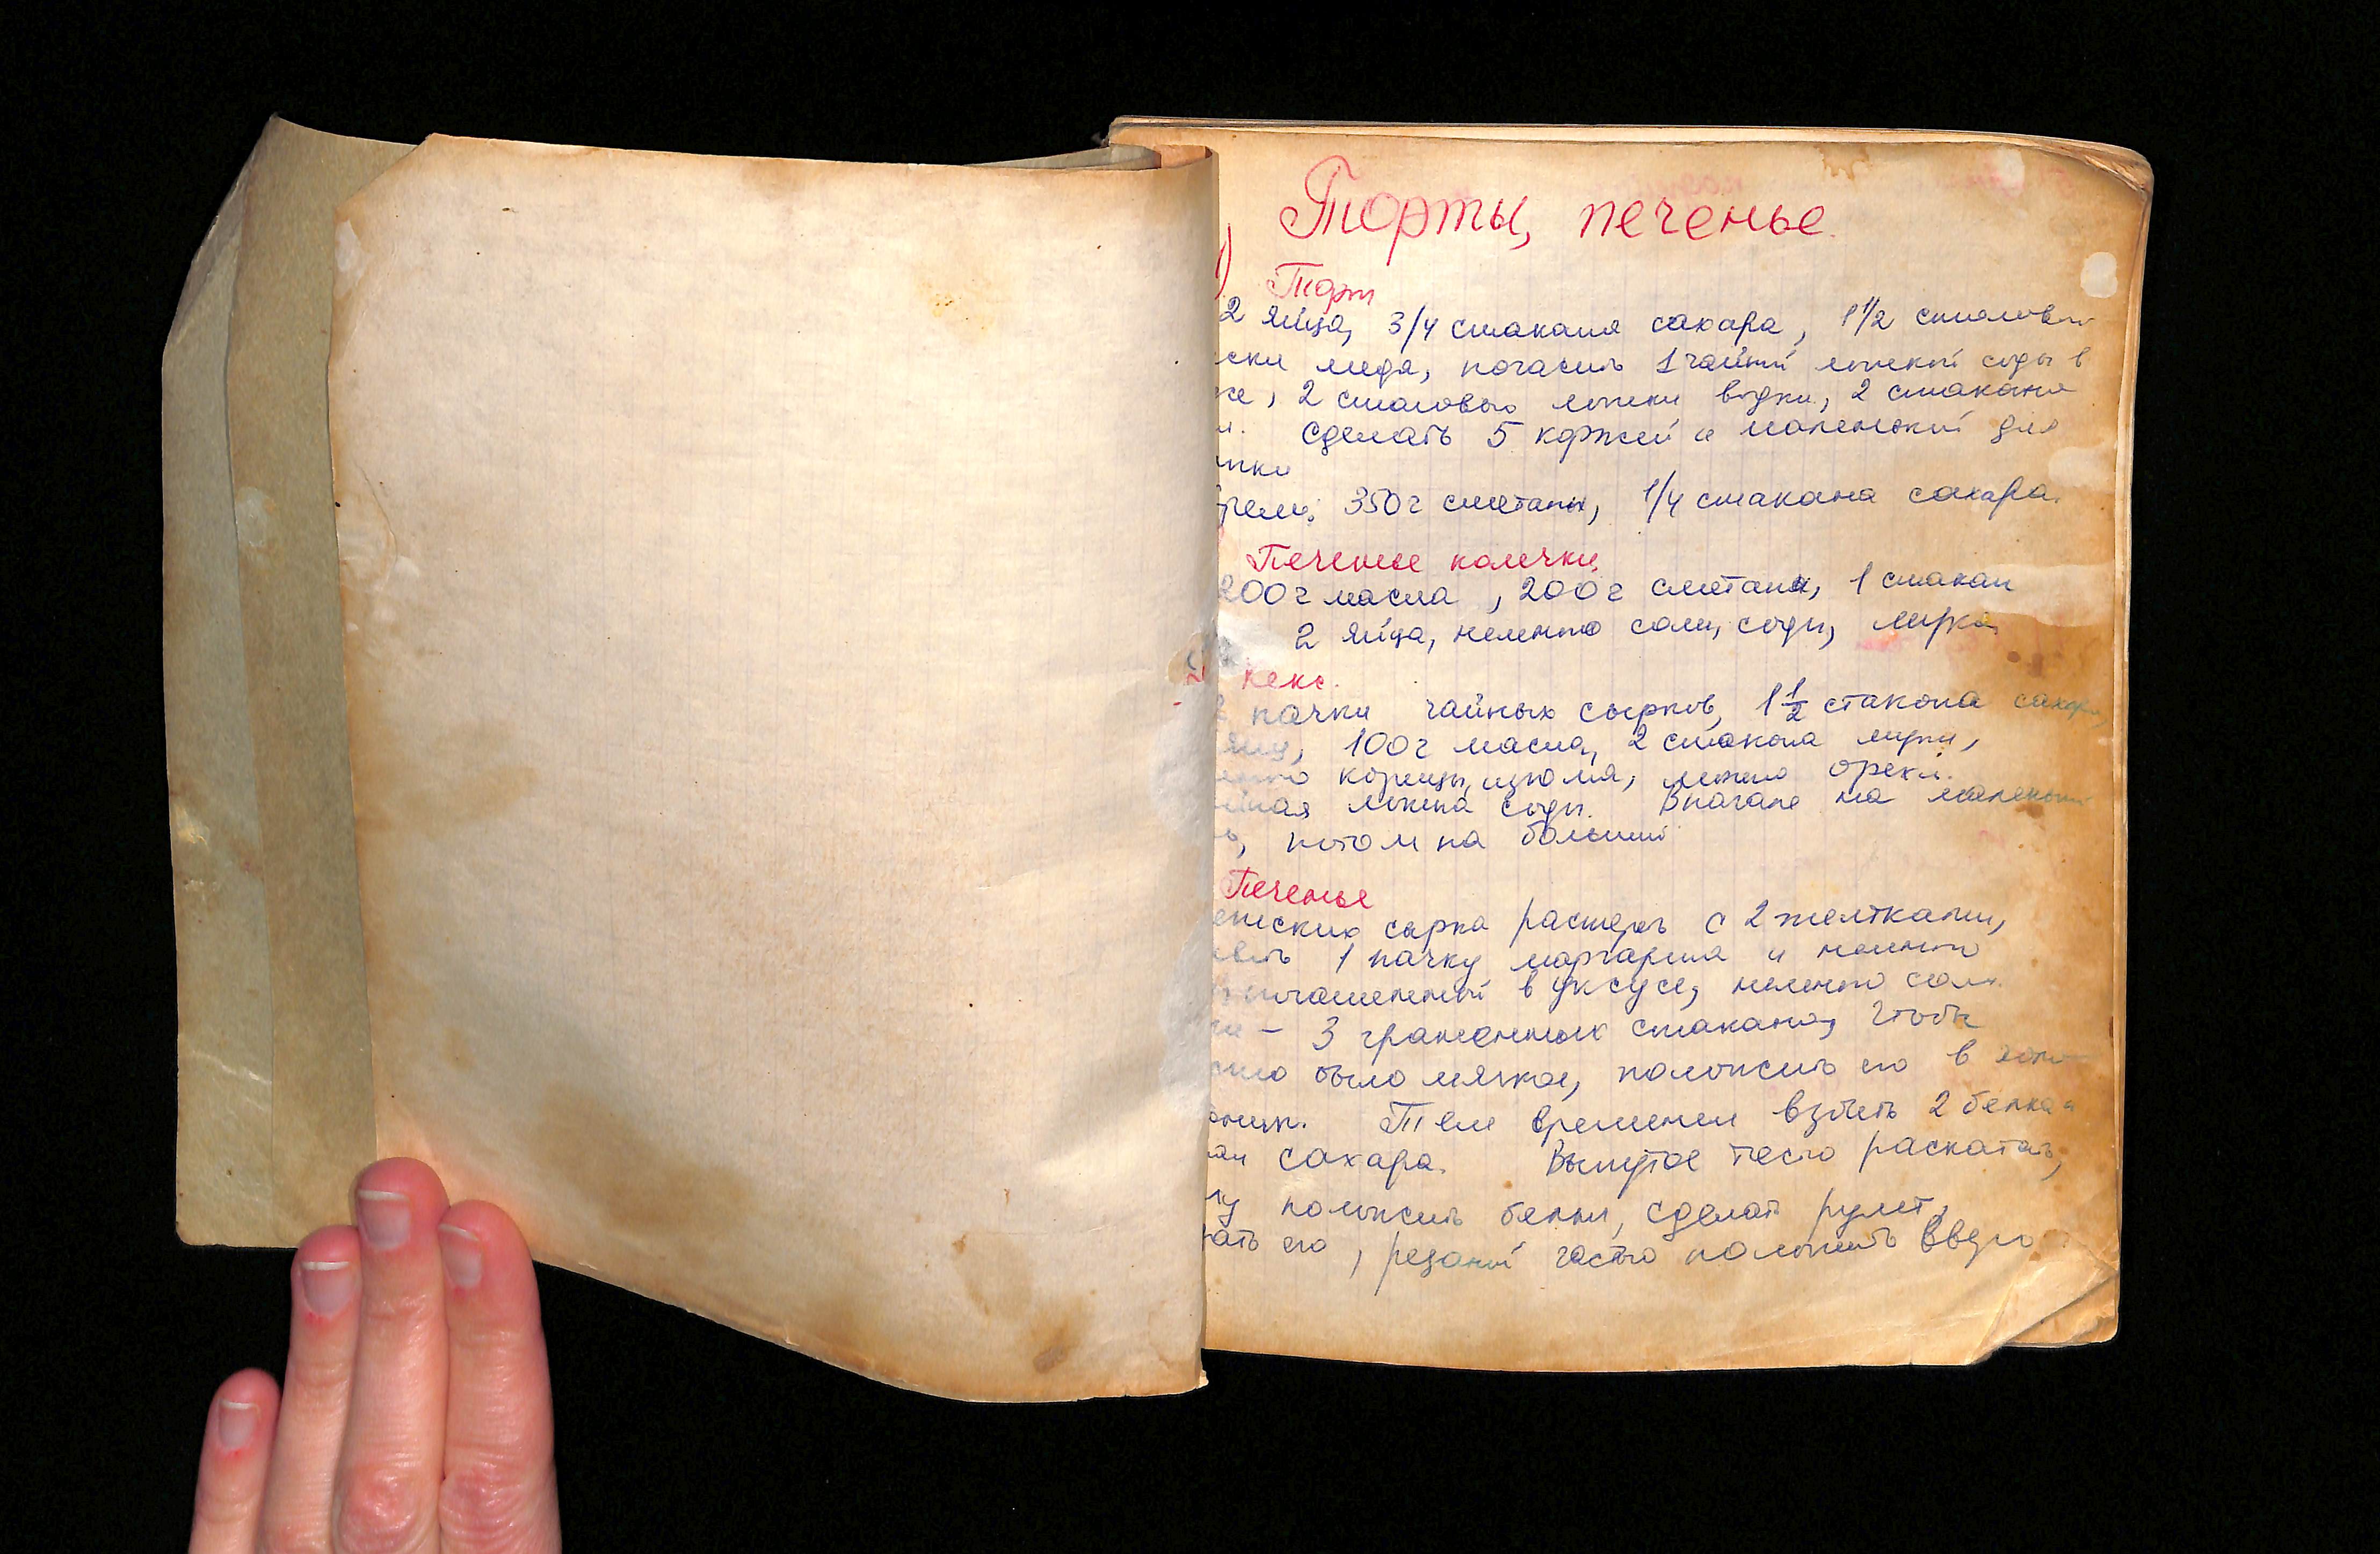 Торты, печенье.
1) Торт
2 яйца, 3/4 стакана сахара, 1 1/2 столовых
меда, погасить 1 чайной ложкой соды в
2 столовых ложки водки, 2 стакана
Сделать 5 коржей и маленький для
350 г сметаны, 1/4 стакана сахара.
Печенье колечки
200 г масла, 200 г сметаны, 1 стакан
2 яйца, немного соли, соды, мука
Кекс.
пачки чайных сырков, 1 1/2 стакана сахара,
100 г масла, 2 стакана муки,
корицы, изюма, можно орехи.
ложка соды. Вначале на маленький
потом на большой
Печенье
сырка растереть с 2 желтками,
1 пачку маргарина и немного
погашенной в уксусе, немного соли.
– 3 граненных стакана, чтобы
было мягкое, положить его в
Тем временем взбить 2 белка и
сахара. Вынутое тесто раскатать,
положить белки, сделать рулет,
его, резаной частью положить вверх